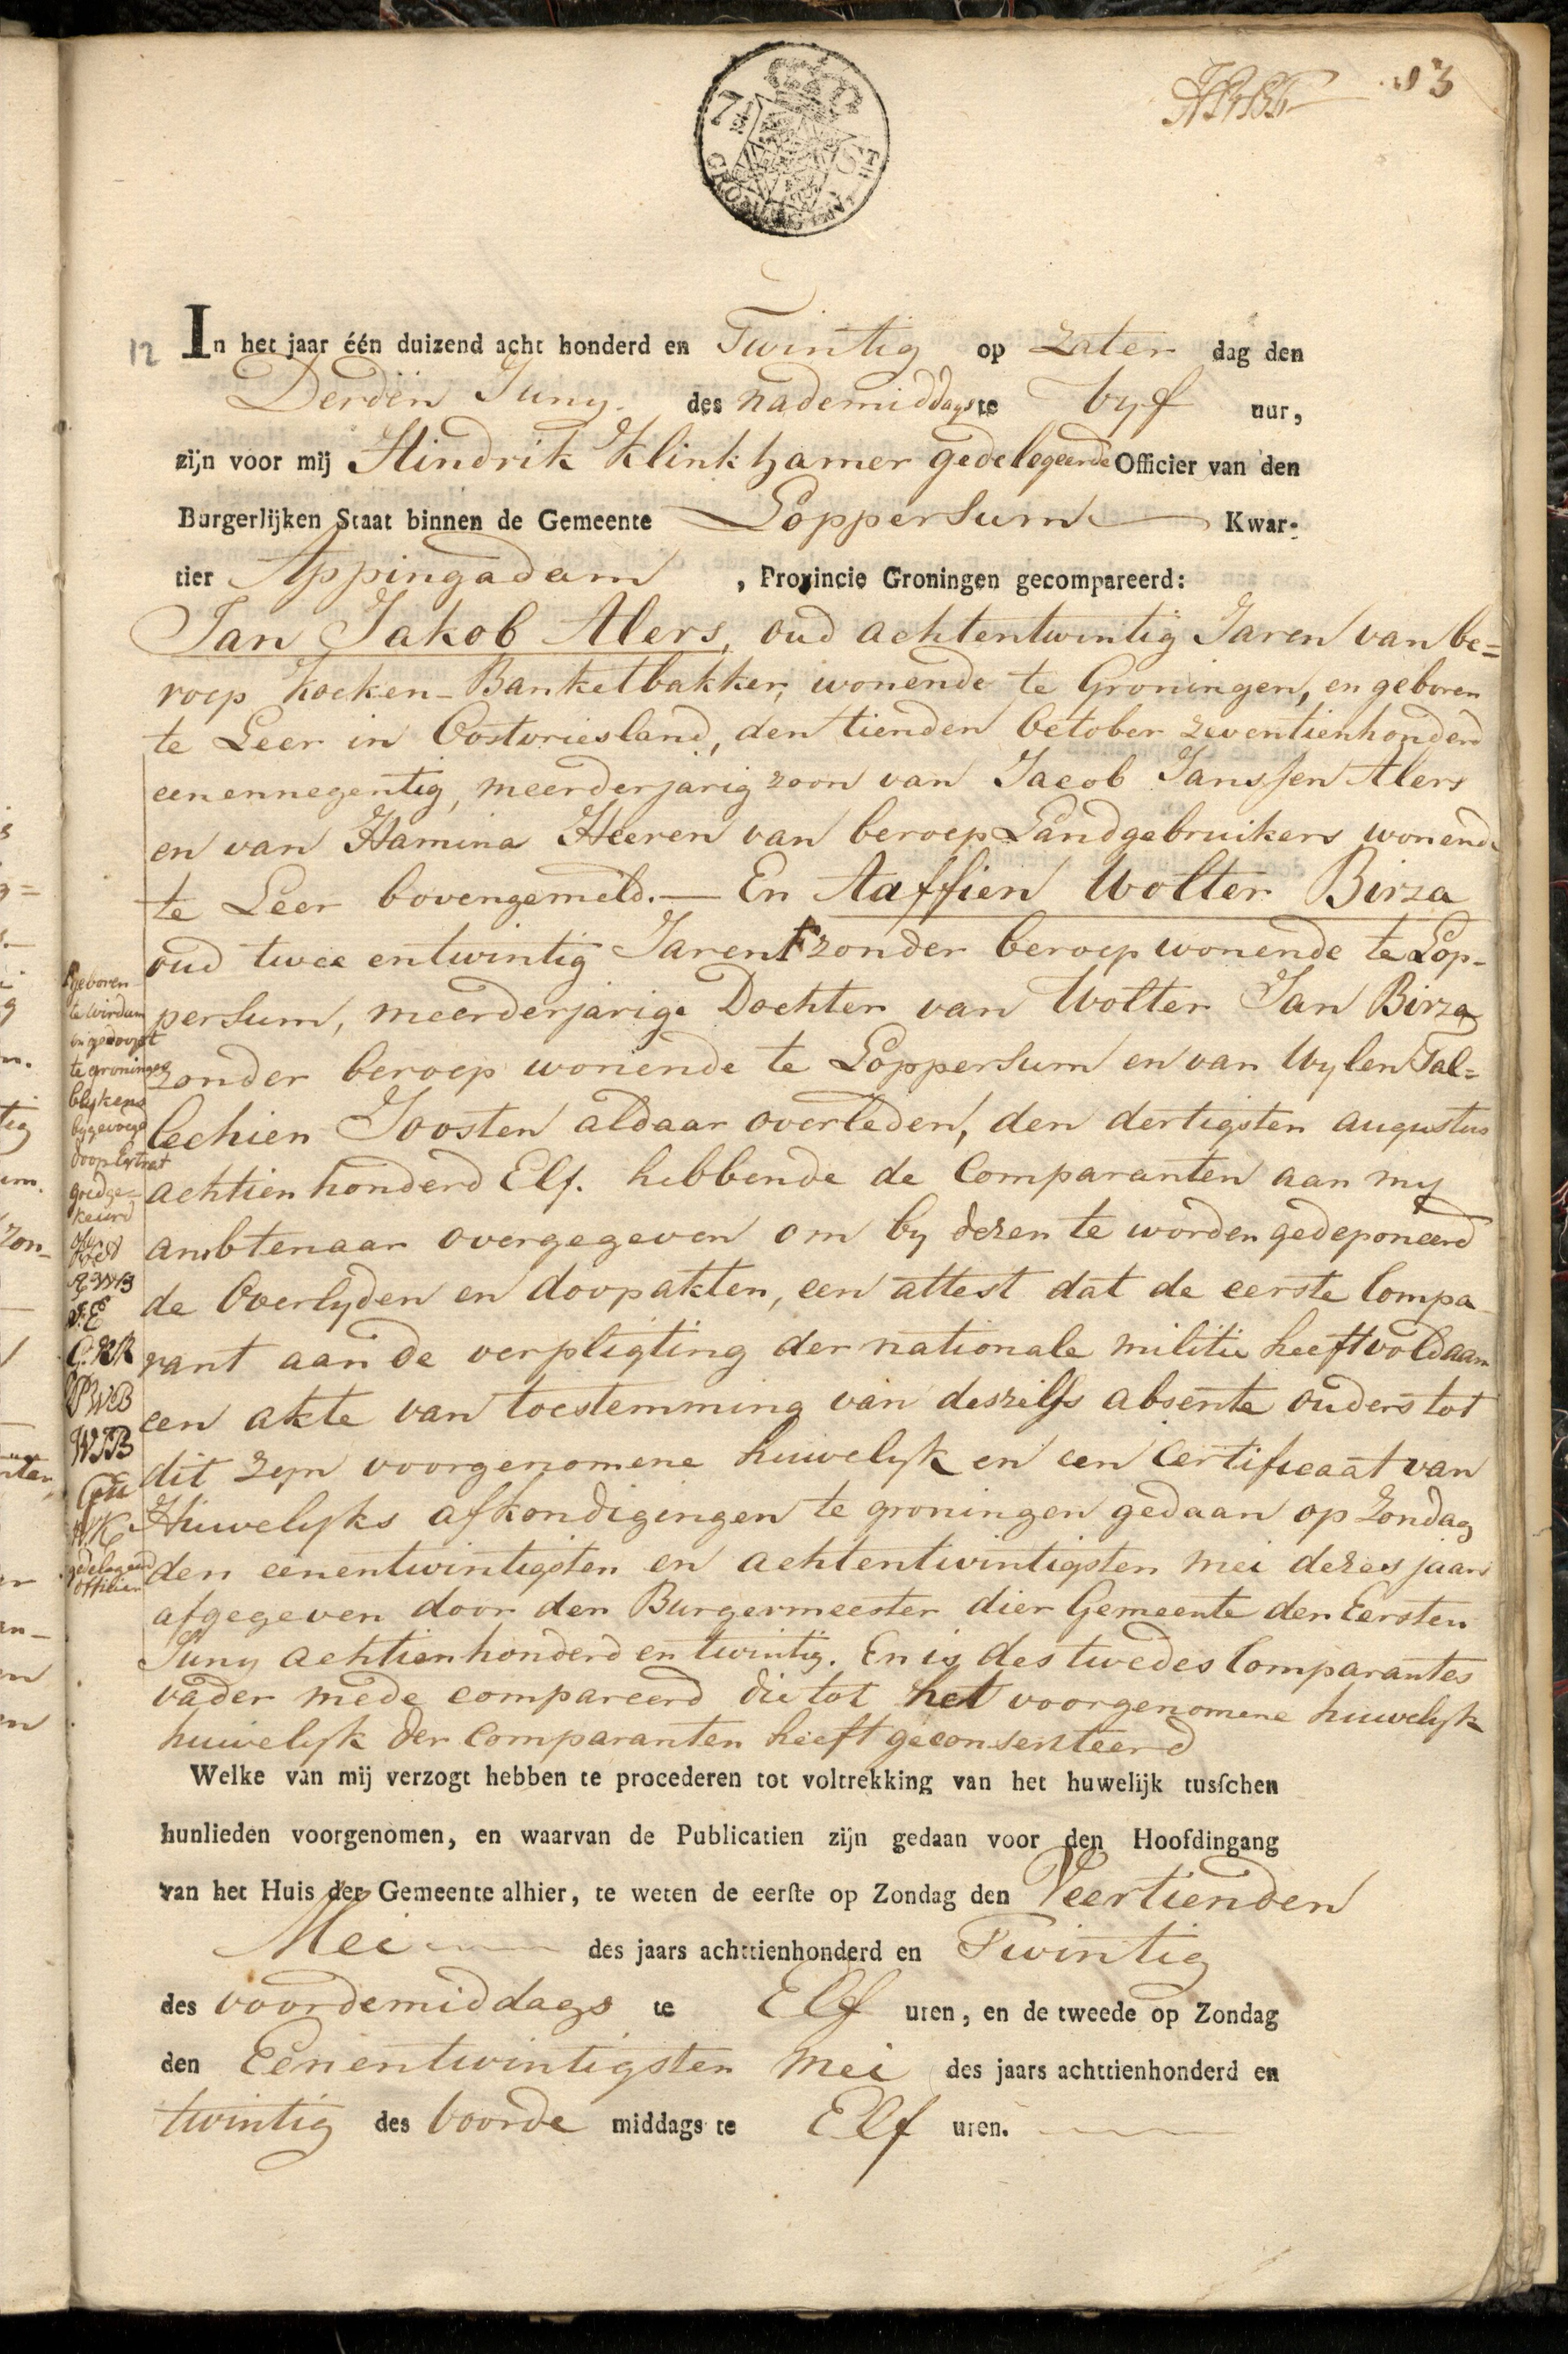 93
7½ St
12
In het jaar één duizend acht honderd en Twintig op Zater dag den
Derden Juny des nademiddags te vyf uur,
zijn voor mij Hindrik Klinkhamer gedelegeerde Officier van den
Burgerlijken Staat binnen de Gemeente Loppersum Kwar-
tier Appingadam, Provincie Groningen gecompareerd:
Jan Jakob Alers, oud achtentwintig Jaren van be=
roep Koeken-Banketbakker, wonende te Groningen, en geboren
te Leer in Oostvriesland, den tienden October zeventienhonderd
eenennegentig, meerderjarig zoon van Jacob Janssen Alers
en van Hamina Heeren van beroep Landgebruikers wonende
te Leer bovengemeld. — En Aaffien Wolter Birza
oud twee entwintig Jaren F zonder beroep wonende te Lop-
persum, meerderjarige Dochter van Wolter Jan Birza
zonder beroep wonende te Loppersum en van Wylen Tal=
lechien Joosten aldaar overleden, den dertigsten augustus
achtien honderd Elf. hebbende de Comparanten aan my
ambtenaar overgegeven om by dezen te worden gedeponeerd
de Overlyden en doopakten, een attest dat de eerste Compa
rant aan de verpligting der nationale militie heeft voldaan
een akte van toestemming van deszelfs absente ouders tot
dit zyn voorgenomene huwelyk en een Certificaat van
Huwelyks afkondigingen te groningen gedaan op Zondag
den eenentwintigsten en achtentwintigsten mei dezes jaars
afgegeven door den Burgermeester dier Gemeente den Eersten
Juny achtienhonderd en twintig. En is des twedes Comparantes
vader mede compareerd die tot het voorgenomene huwelyk
huwelyk der Comparanten heeft geconsenteerd
F geboren
te Wirdum
en gedoopt
te groningen
blykens
bygevoegd
doopExtrat
goedge-
keurd
AWB
JE
PWB
WJB
HK
gedelegeerd
officier
Welke van mij verzogt hebben te procederen tot voltrekking van het huwelijk tusſchen
hunlieden voorgenomen, en waarvan de Publicatien zijn gedaan voor den Hoofdingang
van het Huis der Gemeente alhier, te weten de eerſte op Zondag den Veertienden
Mei des jaars achttienhonderd en Twintig
des voordemiddags te Elf uren, en de tweede op Zondag
den Eenentwintigsten Mei des jaars achttienhonderd en
twintig des voorde middags te Elf uren.